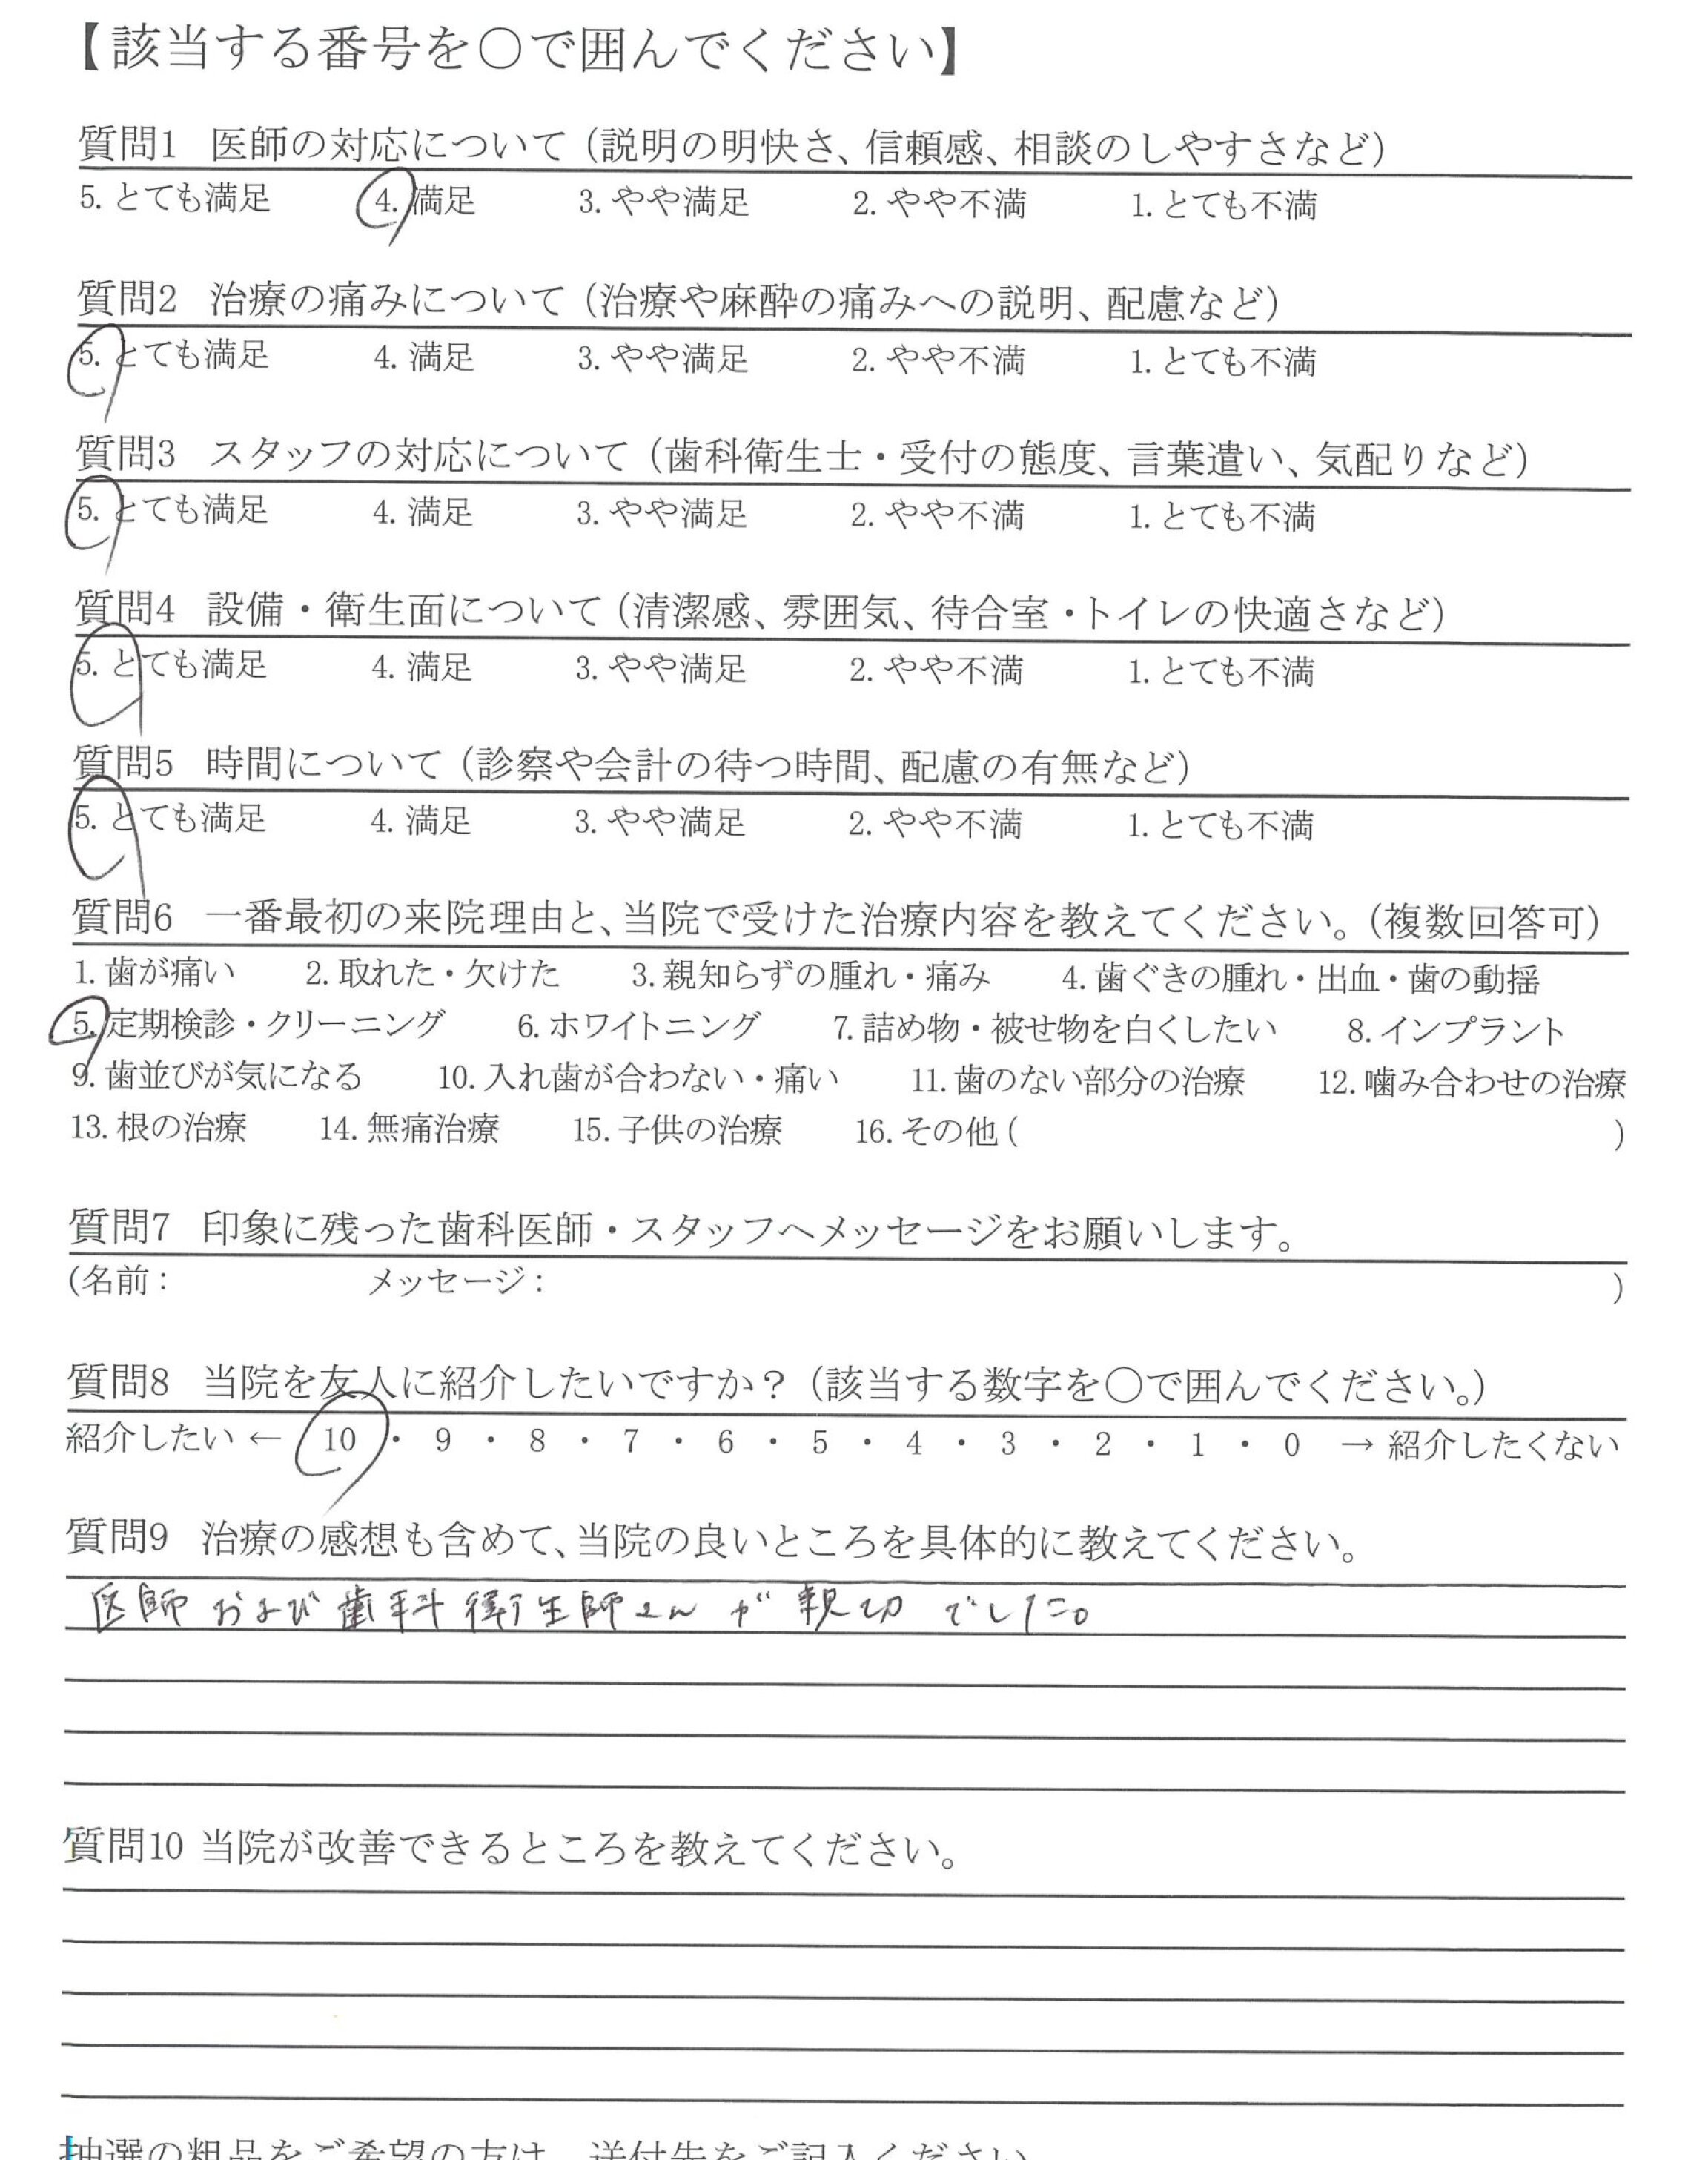 【該当する番号を○で囲んでください】
質問1 医師の対応について（説明の明快さ、信頼感、相談のしやすさなど）
5. とても満足 4. 満足 3. やや満足 2. やや不満 1. とても不満
質問2 治療の痛みについて（治療や麻酔の痛みへの説明、配慮など）
5. とても満足 4. 満足 3. やや満足 2. やや不満 1. とても不満
質問3 スタッフの対応について（歯科衛生士・受付の態度、言葉遣い、気配りなど）
5. とても満足 4. 満足 3. やや満足 2. やや不満 1. とても不満
質問4 設備・衛生面について（清潔感、雰囲気、待合室・トイレの快適さなど）
5. とても満足 4. 満足 3. やや満足 2. やや不満 1. とても不満
質問5 時間について（診察や会計の待つ時間、配慮の有無など）
5. とても満足 4. 満足 3. やや満足 2. やや不満 1. とても不満
質問6 一番最初の来院理由と、当院で受けた治療内容を教えてください。（複数回答可）
1. 歯が痛い 2. 取れた・欠けた 3. 親知らずの腫れ・痛み 4. 歯ぐきの腫れ・出血・歯の動揺
5. 定期検診・クリーニング 6. ホワイトニング 7. 詰め物・被せ物を白くしたい 8. インプラント
9. 歯並びが気になる 10. 入れ歯が合わない・痛い 11. 歯のない部分の治療 12. 噛み合わせの治療
13. 根の治療 14. 無痛治療 15. 子供の治療 16. その他 ( )
質問7 印象に残った歯科医師・スタッフへメッセージをお願いします。
(名前： メッセージ： )
質問8 当院を友人に紹介したいですか？（該当する数字を○で囲んでください。）
紹介したい ← 10 ・ 9 ・ 8 ・ 7 ・ 6 ・ 5 ・ 4 ・ 3 ・ 2 ・ 1 ・ 0 → 紹介したくない
質問9 治療の感想も含めて、当院の良いところを具体的に教えてください。
医師および歯科衛生師さんが親切でした。
質問10 当院が改善できるところを教えてください。
抽選の粗品をご希望の方は、送付先をご記入ください